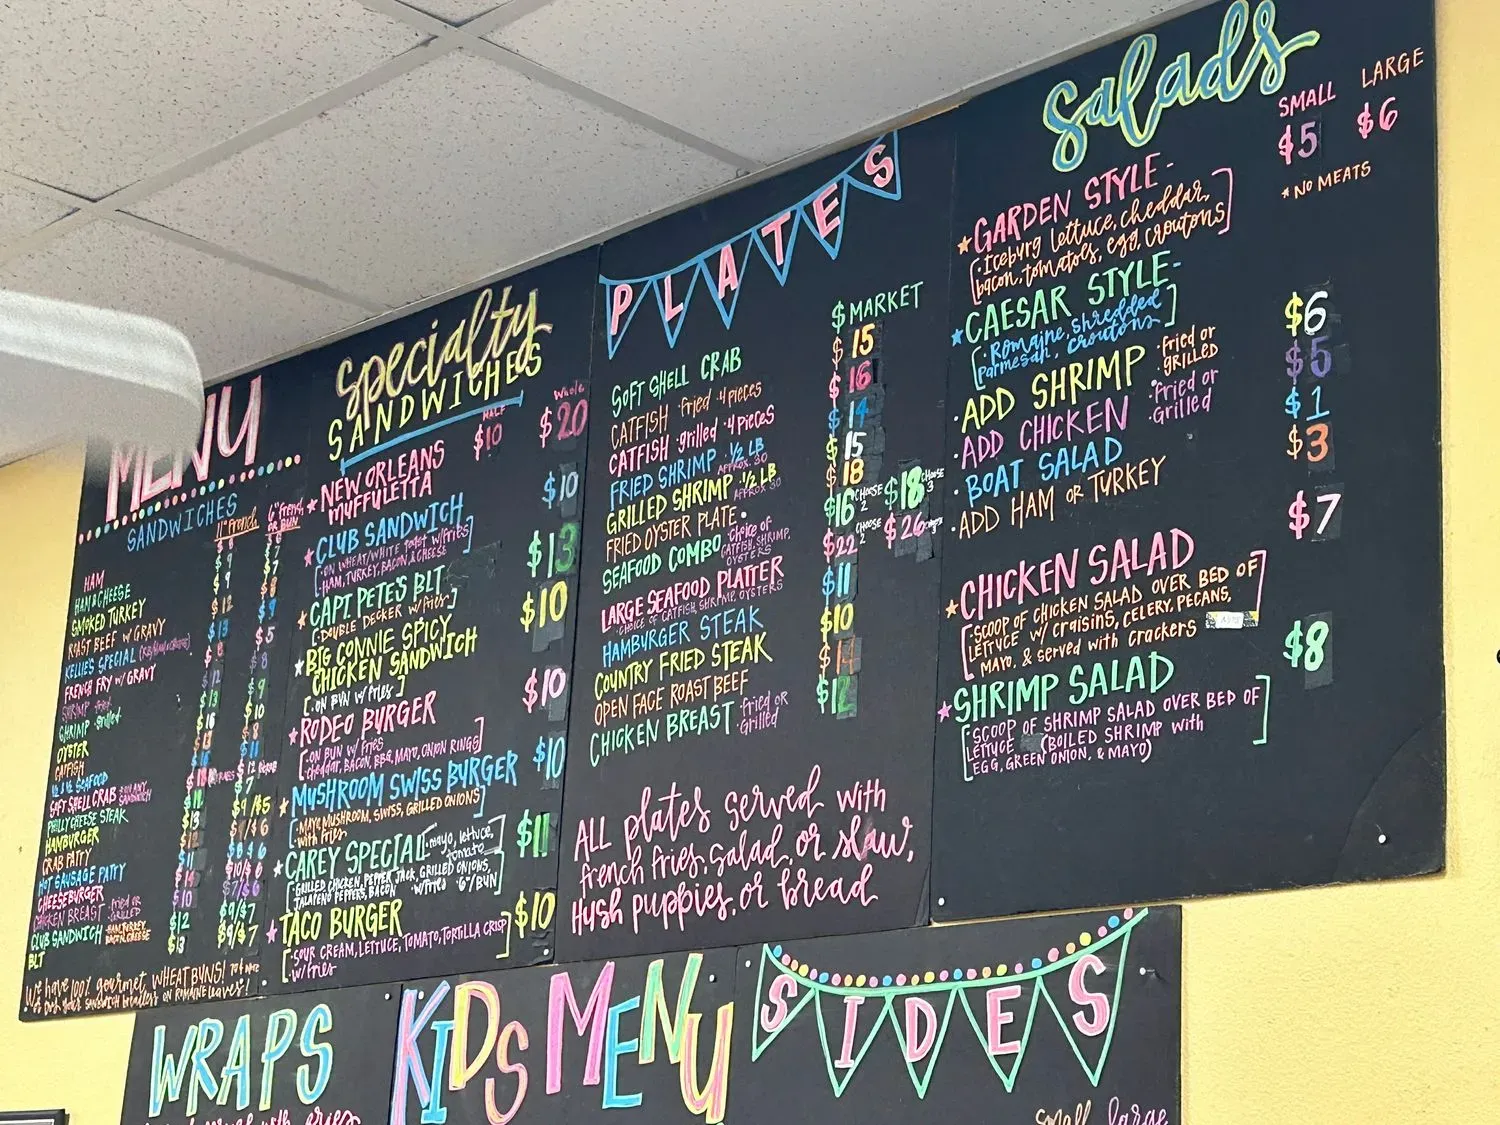 MENU
SANDWICHES
11" French
6" French or BUN
HAM
HAM & CHEESE
SMOKED TURKEY
ROAST BEEF W/ GRAVY
KELLIE'S SPECIAL
FRENCH FRY W/ GRAVY
SHRIMP fried
SHRIMP grilled
OYSTER
CATFISH
1/2 & 1/2 SEAFOOD
SOFT SHELL CRAB
PHILLY CHEESE STEAK
HAMBURGER
CRAB PATTY
HOT SAUSAGE PATTY
CHEESEBURGER
CHICKEN BREAST ·fried or ·GRILLED $10 $9/$7
CLUB SANDWICH HAM, TURKEY, BACON, CHEESE $12 $9/$7
BLT $13
We have 100% gourmet WHEAT BUNS!
Specialty
SANDWICHES
HALF $10
Whole $20
★NEW ORLEANS
MUFFULETTA
★CLUB SANDWICH $10
[·ON WHEAT/WHITE toast w/fries
·HAM, TURKEY, BACON, & CHEESE]
★CAPT. PETE'S BLT $13
[·DOUBLE DECKER w/fries·]
★BIG CONNIE SPICY $10
CHICKEN SANDWICH
[·ON BUN w/ fries]
★RODEO BURGER $10
[·ON BUN w/ fries
·cheddar, BACON, BBQ, MAYO, ONION RINGS]
★MUSHROOM SWISS BURGER $10
[·MAYO, MUSHROOM, SWISS, GRILLED ONIONS
·with fries]
★CAREY SPECIAL [·mayo, lettuce, tomato $11
·GRILLED CHICKEN, PEPPER JACK, GRILLED ONIONS,
JALAPENO PEPPERS, BACON ·w/fries ·6" BUN]
★TACO BURGER $10
[·SOUR CREAM, LETTUCE, TOMATO, TORTILLA CRISP
w/fries]
PLATES
SOFT SHELL CRAB $MARKET
CATFISH ·fried ·4 pieces $15
CATFISH ·grilled ·4 pieces $16
FRIED SHRIMP ·1/2 LB APPROX. 30 $14
GRILLED SHRIMP ·1/2 LB APPROX 30 $15
FRIED OYSTER PLATE· $18
SEAFOOD COMBO ·choice of CATFISH, SHRIMP, OYSTERS $16 CHOOSE 2 $18 CHOOSE 3
LARGE SEAFOOD PLATTER $22 CHOOSE 2 $26
·CHOICE OF CATFISH, SHRIMP, OYSTERS
HAMBURGER STEAK $11
COUNTRY FRIED STEAK $10
OPEN FACE ROAST BEEF
CHICKEN BREAST ·fried or ·Grilled $12
ALL plates served with
french fries, salad, or slaw,
Hush puppies, or bread
Salads
SMALL LARGE
$5 $6
*NO MEATS
★GARDEN STYLE-
[·Iceburg lettuce, cheddar,
bacon, tomatoes, egg, croutons]
★CAESAR STYLE-
[·Romaine, shredded
parmesan, croutons]
·ADD SHRIMP ·fried or ·grilled $6
·ADD CHICKEN ·fried or ·Grilled $5
·BOAT SALAD $1
·ADD HAM or TURKEY $3
★CHICKEN SALAD $7
[·SCOOP OF CHICKEN SALAD OVER BED OF
LETTUCE w/ CRAISINS, CELERY, PECANS,
MAYO, & served with crackers]
★SHRIMP SALAD $8
[·SCOOP OF SHRIMP SALAD OVER BED OF
LETTUCE (BOILED SHRIMP with
EGG, GREEN ONION, & MAYO)]
WRAPS
KIDS MENU
SIDES
small large